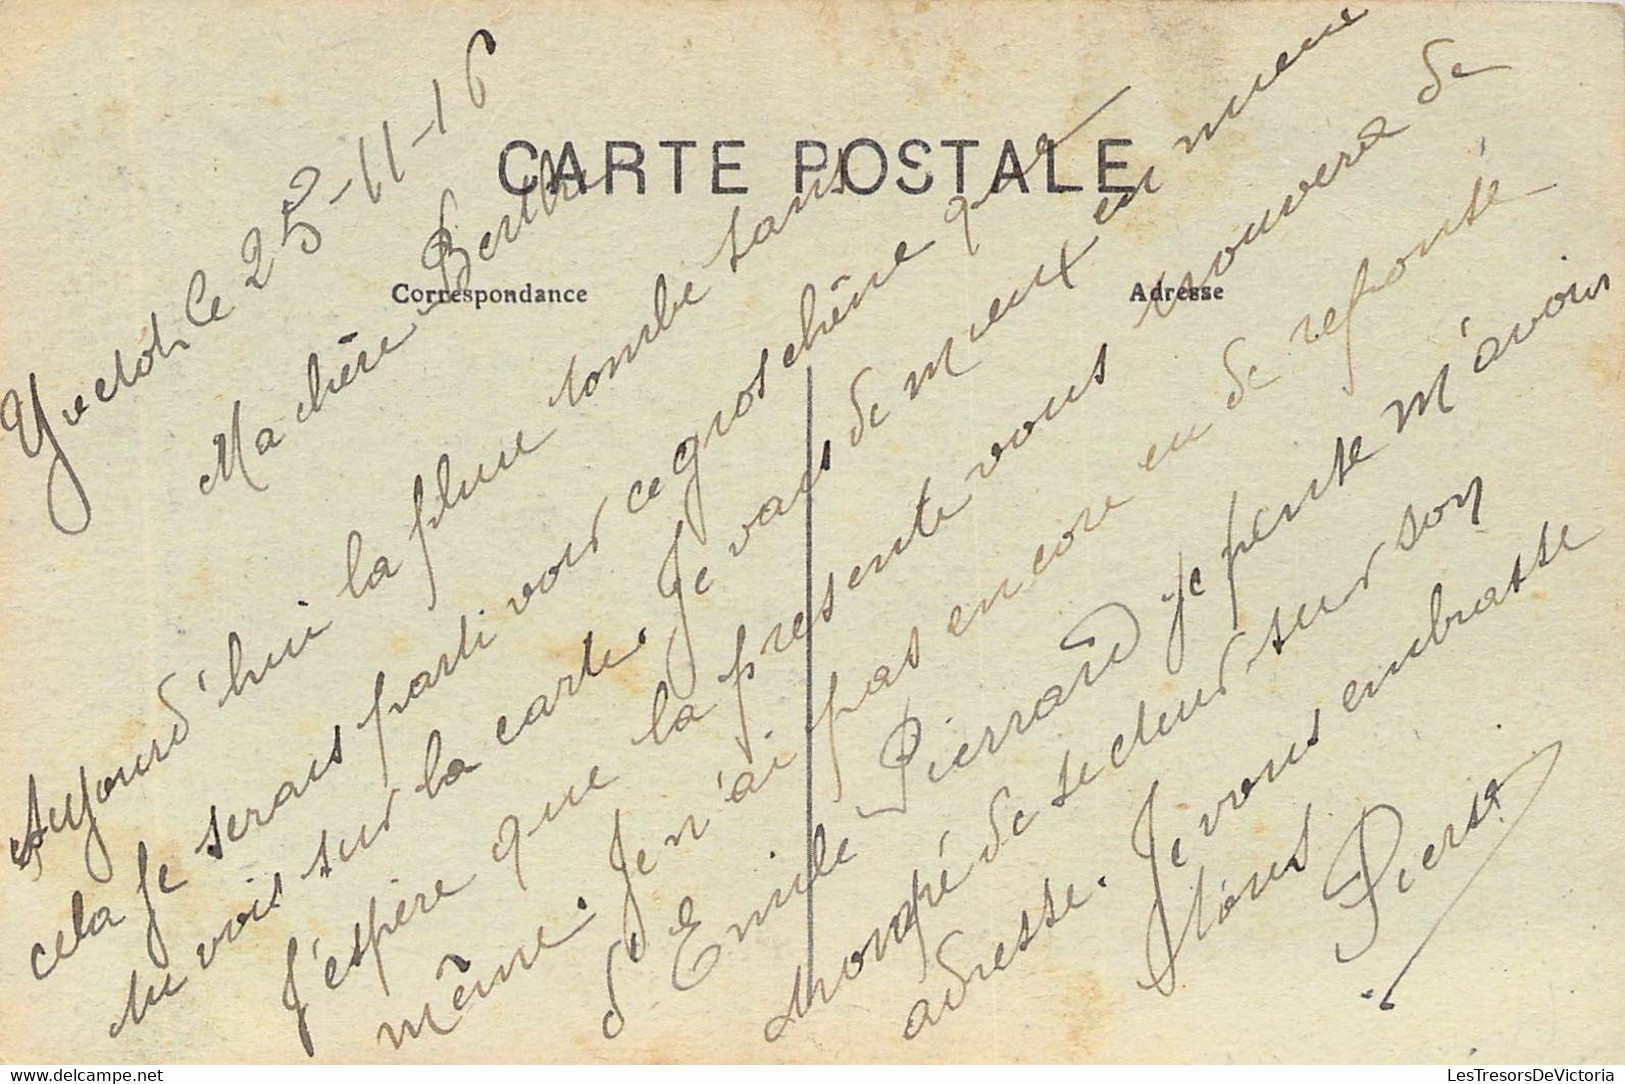 CARTE POSTALE
Correspondance
Adresse
Yvetot le 25-11-16
Ma chère Berthe
Aujourd'hui la pluie tombe sans
cela je serais parti voir ce gros chêne que
tu vois sur la carte. Je vais de mieux en mieux
J'espère que la presente vous trouvera de
même. Je n'ai pas encore eu de reponse
d'Emile Pierrard je pense m'avoir
trompé de secteur sur son
adresse. Je vous embrasse
tous
LesTresorsDeVictoria